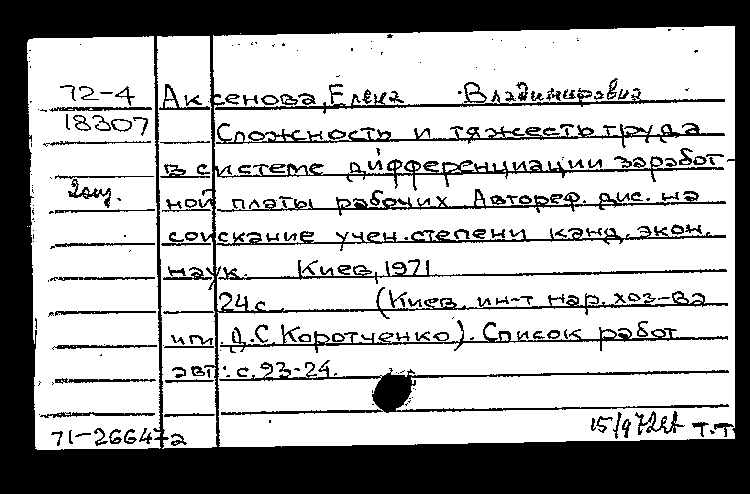 72-4 Аксенова, Елена Владимировна
18307 Сложность и тяжесть труда
в системе дифференциации заработ-
2экз. ной платы рабочих Автореф. дис. на
соискание учен. степени канд. экон.
наук. Киев, 1971
24с (Киев. ин-т нар. хоз-ва
им. Д.С. Коротченко). Список работ
авт: с. 23-24.
71-26647а 15/9 72 Т.Т.